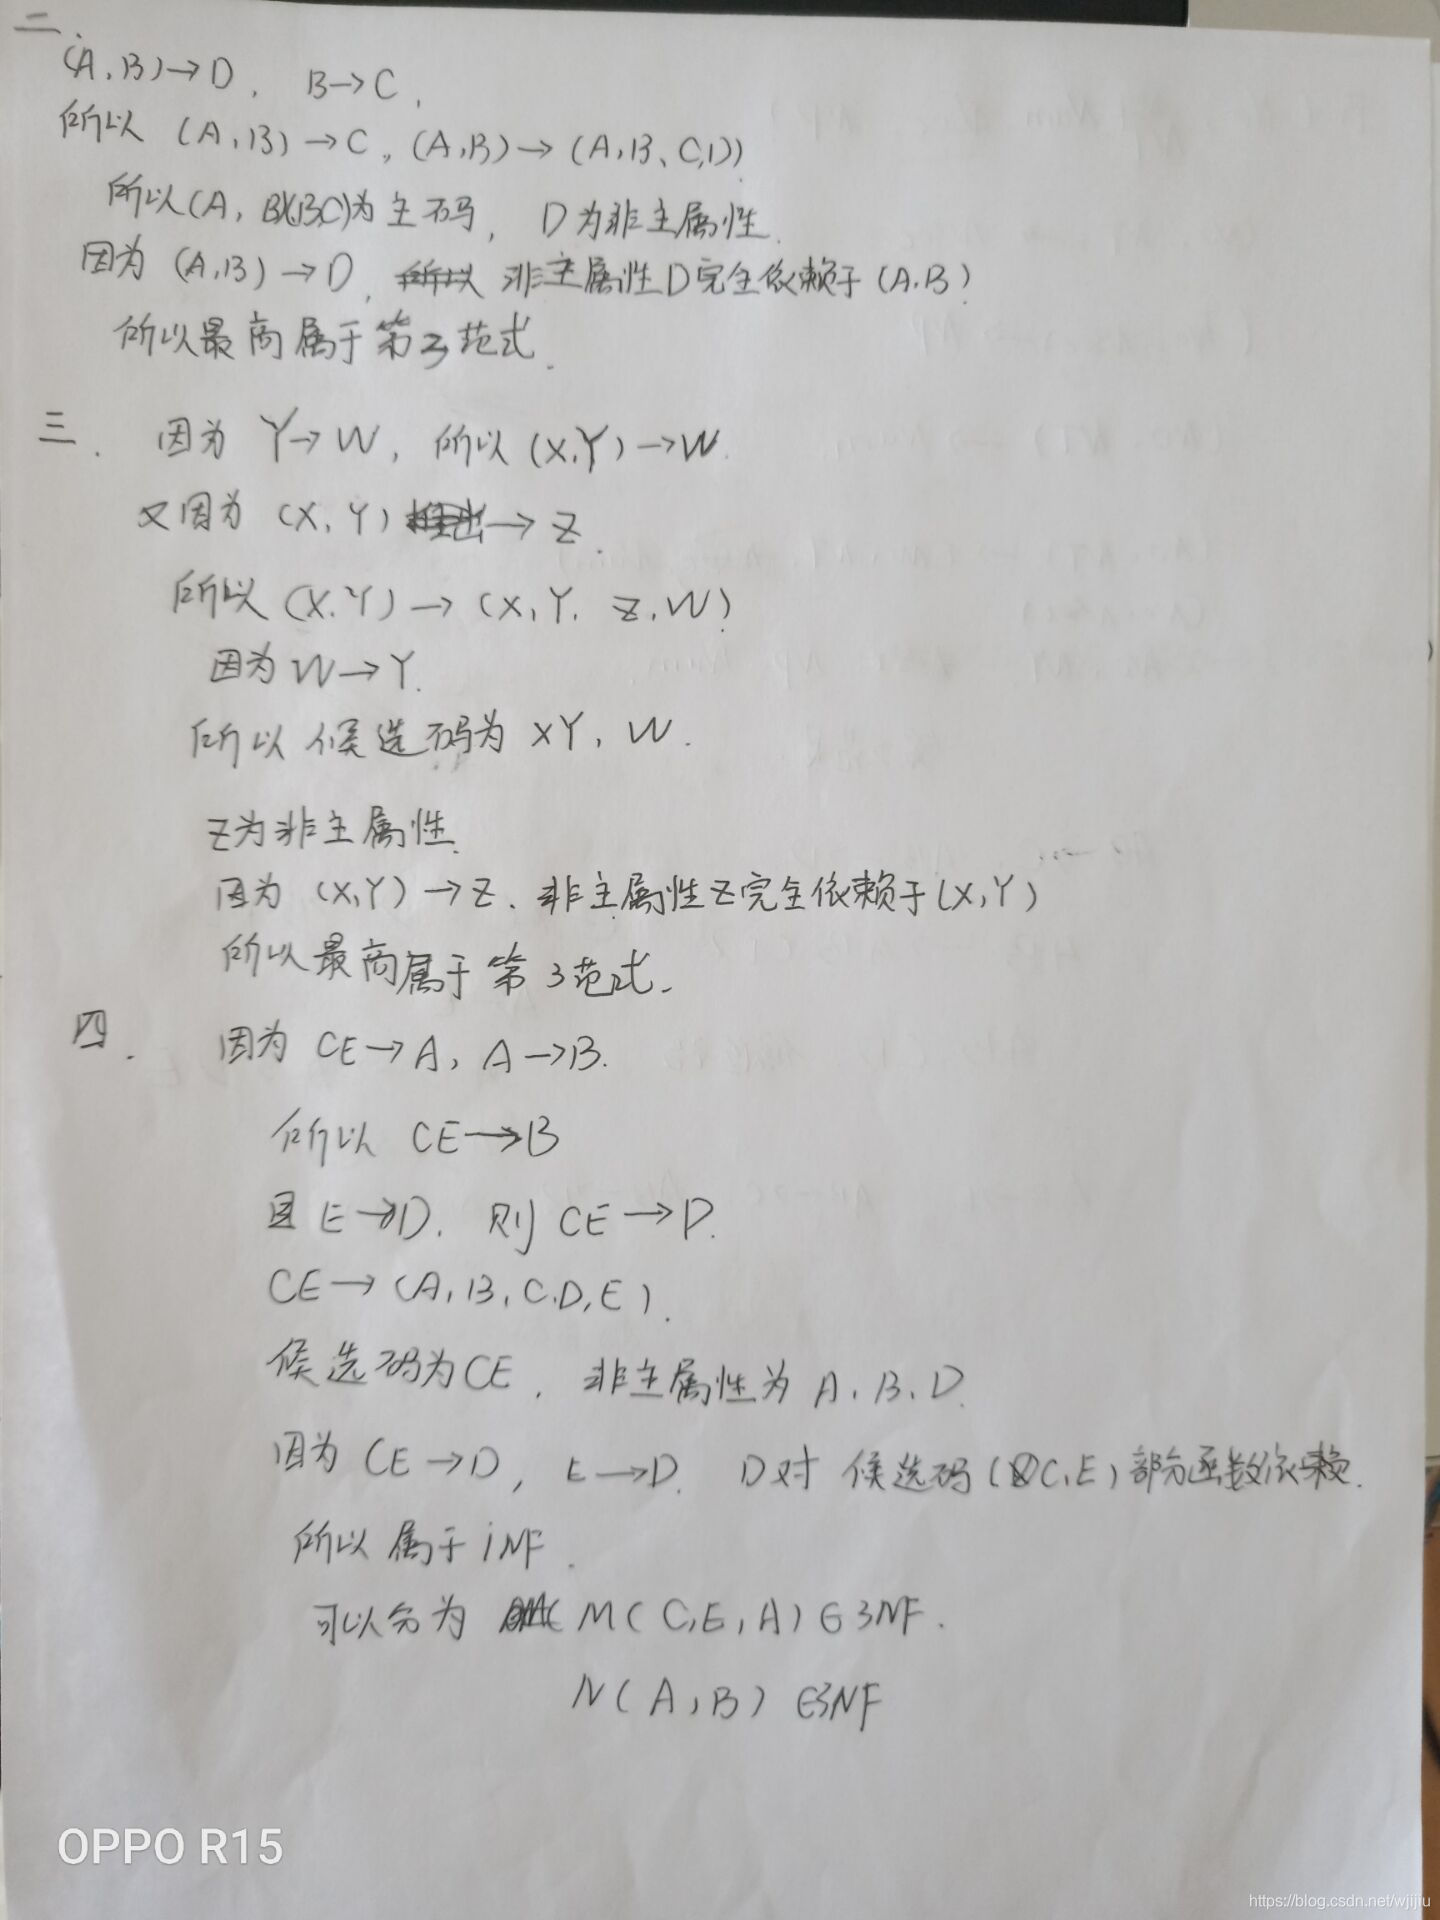 二、
(A,B)→D, B→C,
所以 (A,B)→C, (A,B)→(A,B、C,D)
所以(A, B)(B,C)为主码, D为非主属性.
因为 (A,B)→D, 所以 非主属性D完全依赖于(A.B)
所以最高属于第3范式.
三、 因为 Y→W, 所以 (X,Y)→W.
又因为 (X,Y) 推出→Z.
所以 (X.Y)→(X,Y. Z,W)
因为 W→Y.
所以候选码为 XY, W.
Z为非主属性.
因为 (X,Y)→Z. 非主属性Z完全依赖于(X,Y)
所以最高属于第3范式.
四. 因为 CE→A, A→B.
所以 CE→B
且 E→D. 则 CE→D.
CE→(A,B,C.D,E).
候选码为CE, 非主属性为 A、B、D.
因为 CE→D, E→D. D对 候选码(C,E)部分函数依赖.
所以属于1NF.
可以分为 M(C,E,A)∈3NF.
N(A,B) ∈3NF
OPPO R15
https://blog.csdn.net/wjijiu